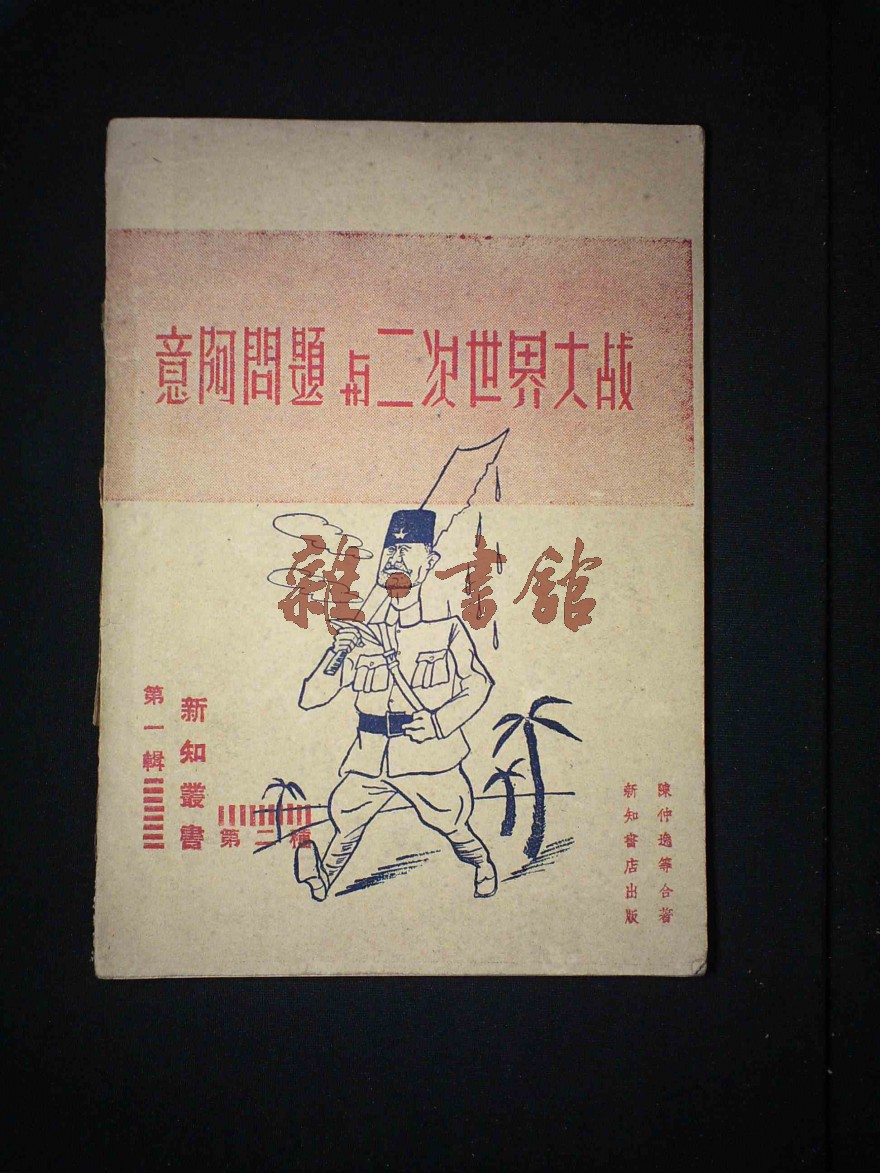 意阿問題与二次世界大战
雜·書館
新知叢書
第一輯
第二種
陳仲逸等合著
新知書店出版